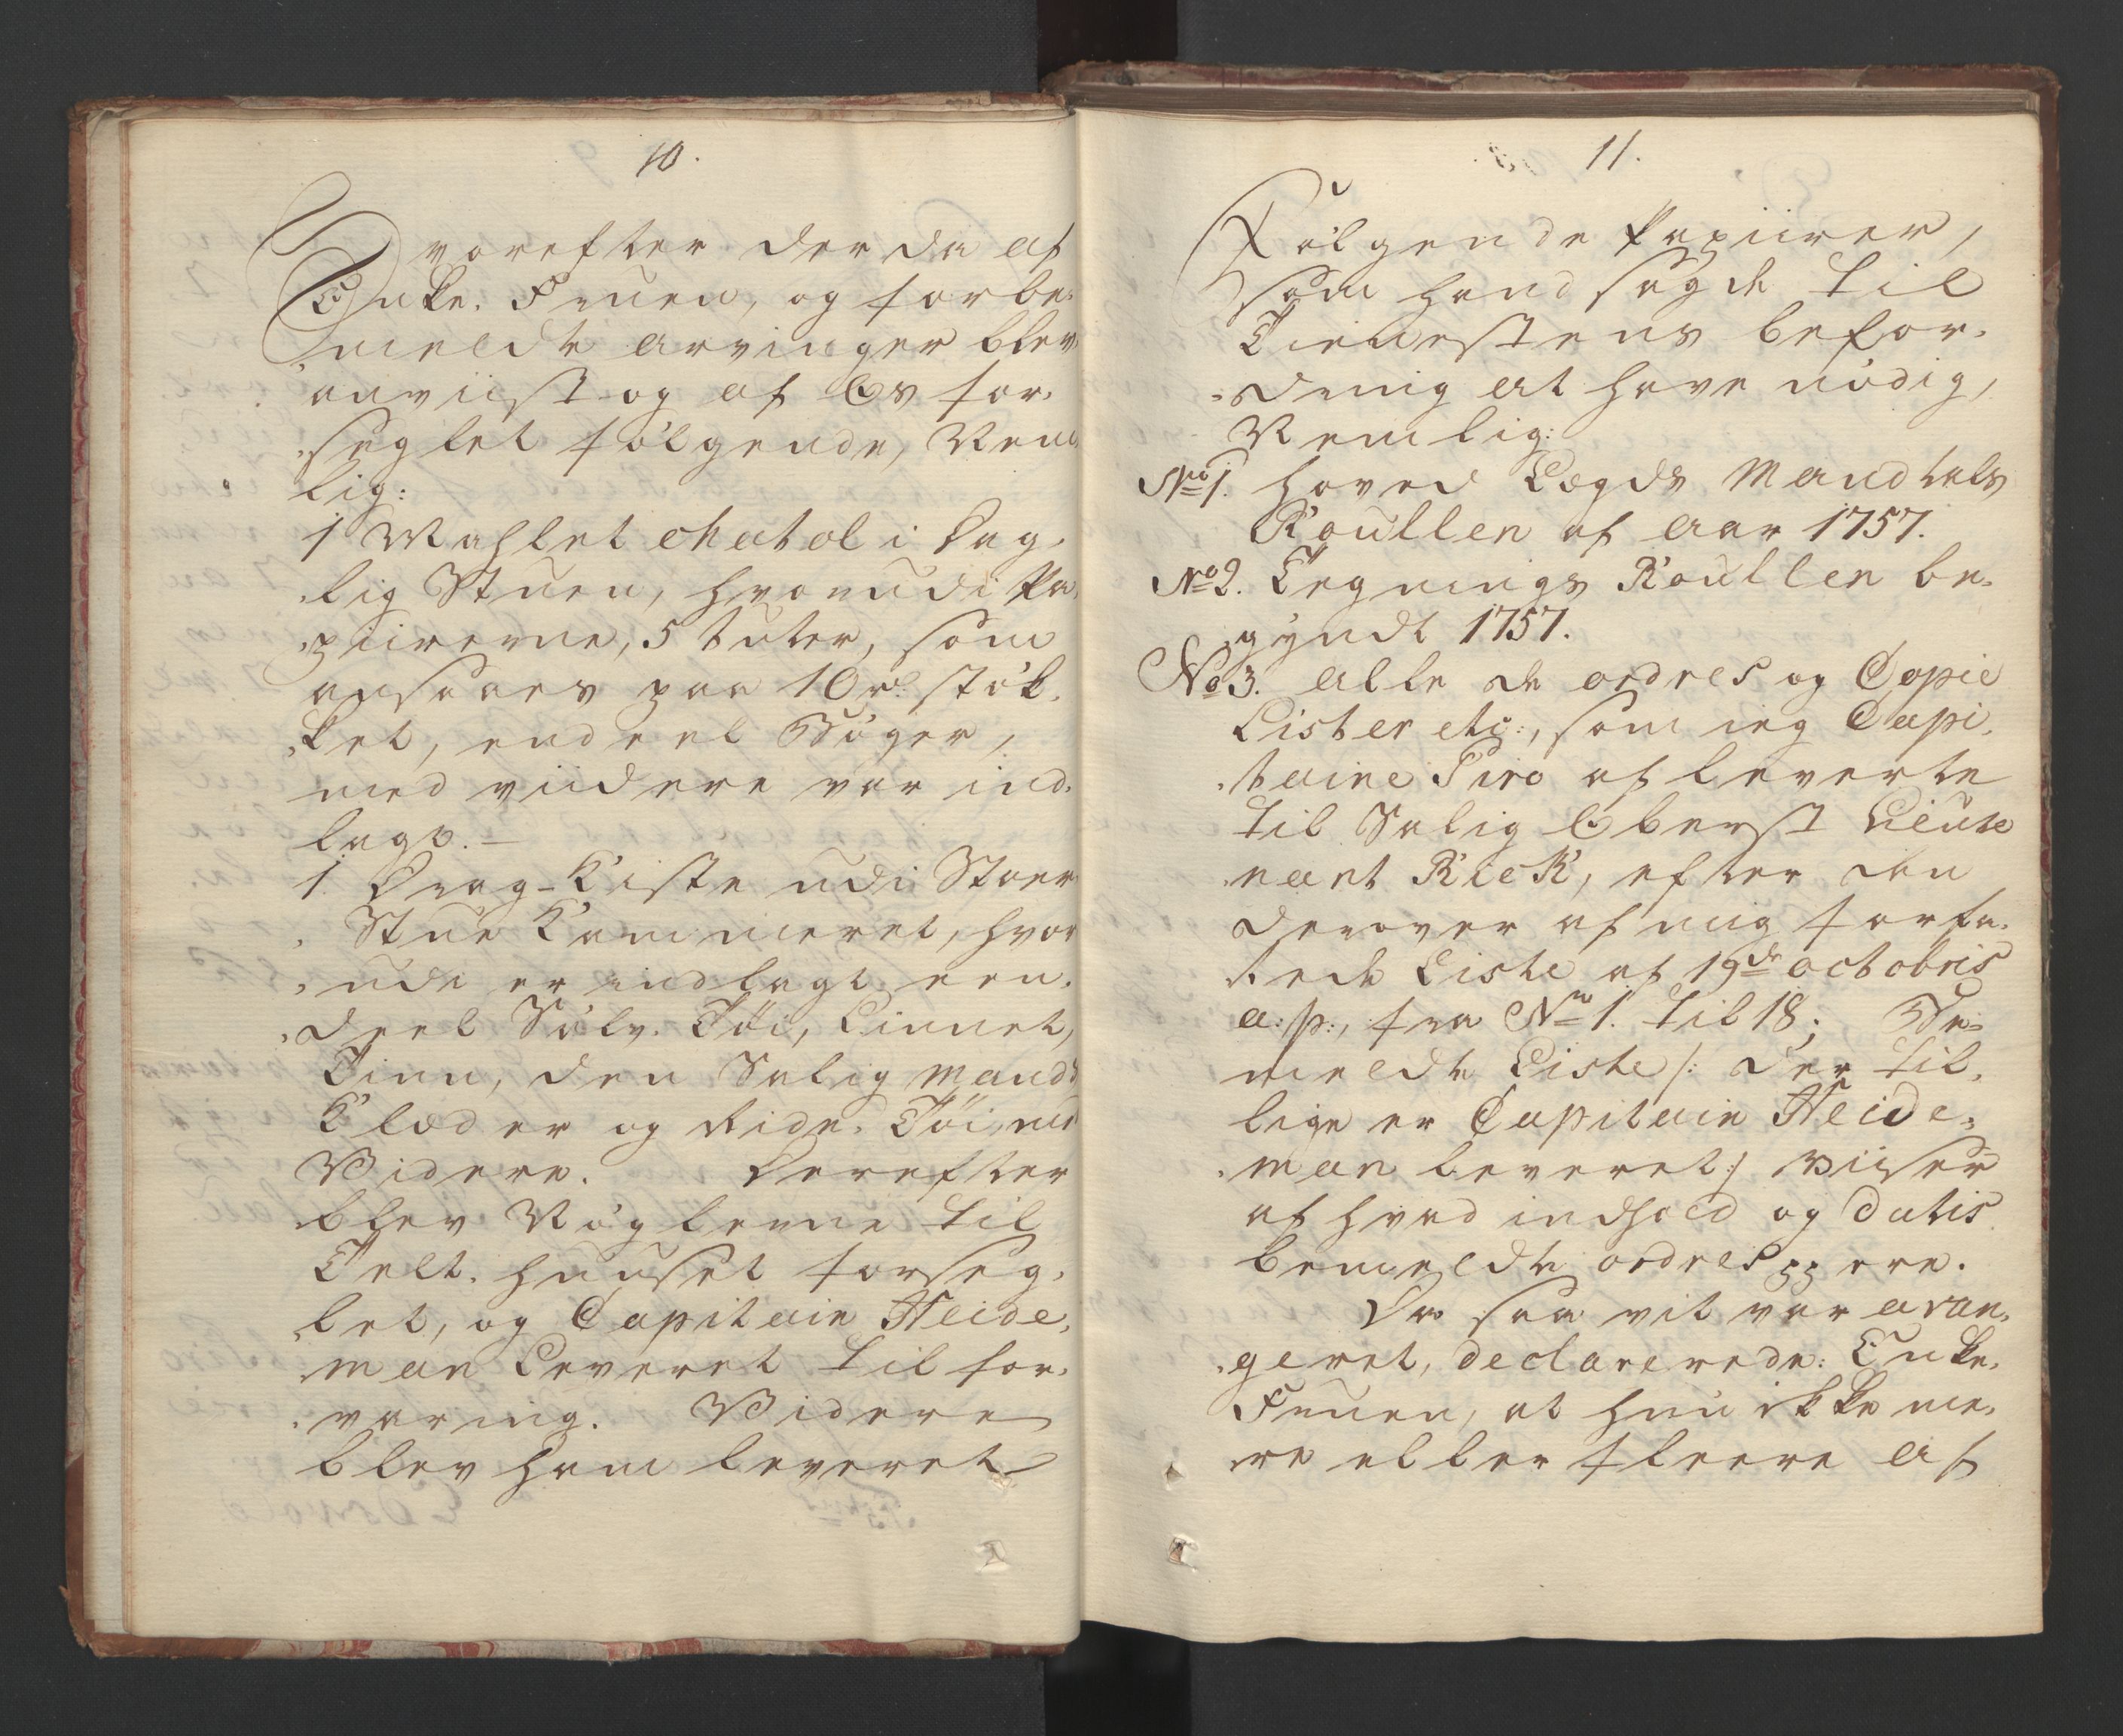 10.
Hvorefter der da af
Enke-Fruen, og forbe-
meldte arvinger blev
anviist og af Os for-
seglet følgende, Nem-
lig:
1 Mahlet Chatol i Dag-
lig Stuen, hvorudi Pa-
piirerne, 5 tuter, som
ansaaes paa 10 rd. støk-
ket, endeel Bøger,
med viidere var ind-
lagt. —
1. Drag-Kiste udi Stoer
Stue Kammeret, hvor
udi er indlagt een-
deel Sølv-Tøi, Linnet,
Tinn, den Salig Mands
Klæder og Ride-Tøi, med
Videre. Derefter
blev Nøglerne til
Telt-huuset forseg-
let, og Capitain Heide-
man Leveret til for-
varing. Videre
blev ham leveret
11.
Følgende Papiirer,
som hand sagde til
Tienestens befor-
dring at have nødig,
Nemlig:
No 1. Hoved Lægds Mandtals
Roullen af aar 1757.
No 2. Tegnings Roullen be-
gyndt 1757.
No 3. Alle de ordres og Copie
Lister etc:, som ieg Capi-
taine Siro afleverte
til Salig Oberst Lieute
nant Rieck, efter den
derover af mig forfa-
tede Liste af 19de octobris
a: p:, fra No 1. til 18; Be-
meldte Liste /: der til-
lige er Capitain Heide-
man leveret :/ Viiser
af hvad indhold og datis
bemeldte ordres pp ere.
Da saa vit var aran-
geret, declarerede Enke-
Fruen, at hun ikke me-
re eller fleere af